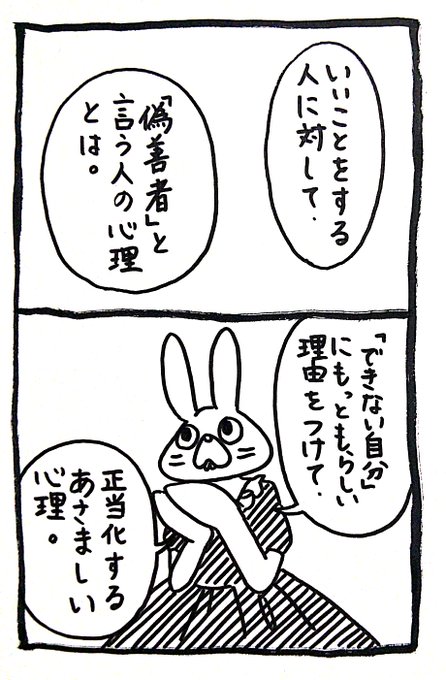 いいことをする
人に対して.
「偽善者」と
言う人の心理
とは。
「できない自分」
にもっともらしい
理由をつけて.
正当化する
あさましい
心理。